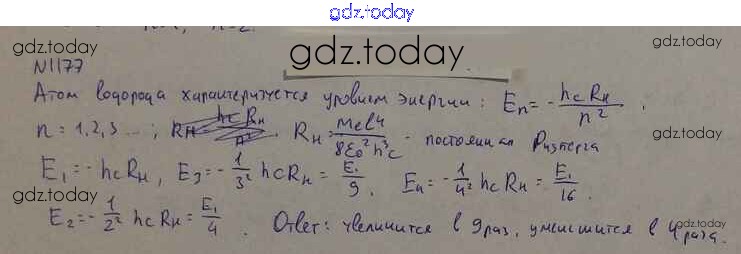 gdz.today
gdz.today
gdz.today
gdz.today
N1177
Атом водорода характеризуется уровнем энергии: Eₙ = - hcR_H / n².
gdz.today
n = 1, 2, 3 ...; R_H = m_e e⁴ / 8ε₀²h³c - постоянная Ридберга
E₁ = - hcR_H, E₃ = - 1/3² hcR_H = E₁/9. E₄ = - 1/4² hcR_H = E₁/16.
gdz.today
E₂ = - 1/2² hcR_H = E₁/4. Ответ: увеличится в 9 раз, уменьшится в 4 раза.
gdz.today